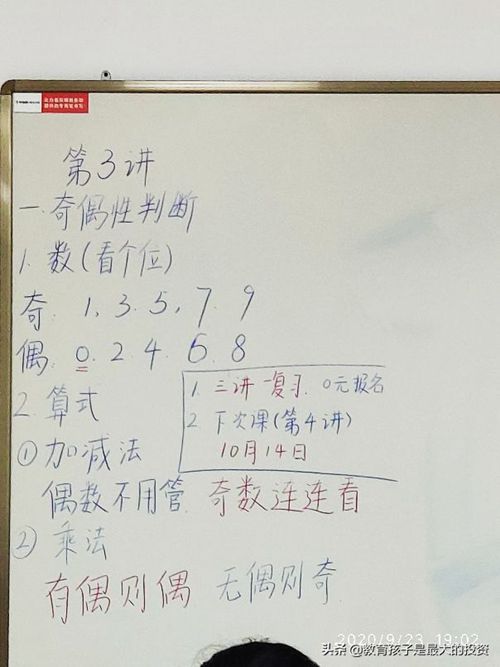 第3讲
一.奇偶性判断
1.数(看个位)
奇. 1,3.5,7.9
偶. 0.2.4.6.8
2.算式
①加减法
偶数不用管.奇数连连看
②乘法
有偶则偶 无偶则奇.
1.三讲一复习.0元报名
2.下次课(第4讲)
10月14日
2020/9/23 19:02
头条@教育孩子是最大的投资